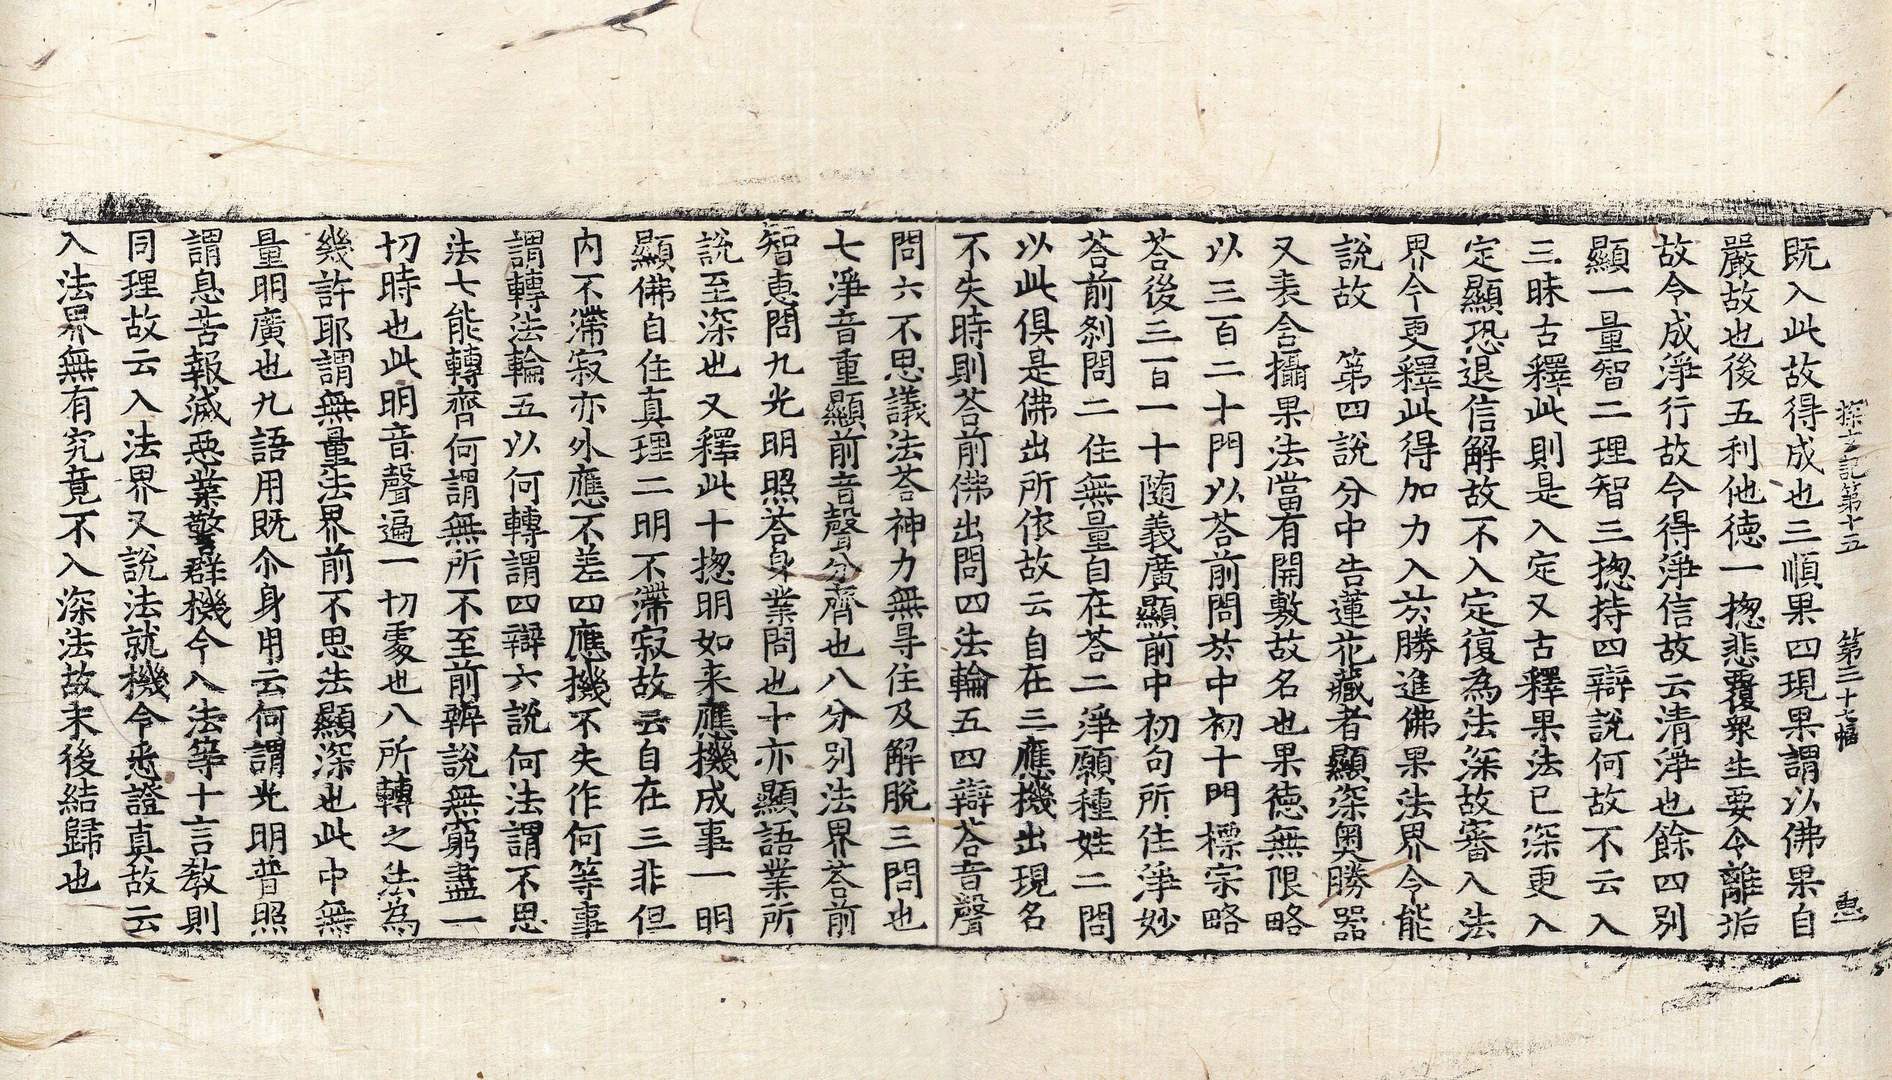 探玄記第十五　第三十七幅　惠
既入此故得成也三順果四現果謂以佛果自
嚴故也後五利他德一揔悲覆衆生要令離垢
故令成淨行故令得淨信故云清淨也餘四別
顯一量智二理智三揔持四辯說何故不云入
三昧古釋此則是入定又古釋果法已深更入
定顯恐退信解故不入定復為法深故審入法
界今更釋此得加力入於勝進佛果法界令能
說故　第四說分中告蓮花藏者顯深奧勝器
又表含攝果法當有開敷故名也果德無限略
以三百二十門以荅前問於中初十門標宗略
荅後三百一十隨義廣顯前中初句所住淨妙
荅前刹問二住無量自在荅二淨願種姓二問
以此俱是佛出所依故云自在三應機出現名
不失時則荅前佛出問四法輪五四辯荅音聲
問六不思議法荅神力無㝵住及解脫三問也
七淨音重顯前音聲分齊也八分別法界荅前
智惠問九光明照荅身業問也十亦顯語業所
說至深也又釋此十揔明如来應機成事一明
顯佛自住真理二明不滯寂故云自在三非但
內不滯寂亦外應不差四應機不失作何等事
謂轉法輪五以何轉謂四辯六說何法謂不思
法七能轉齊何謂無所不至前辨說無窮盡一
切時也此明音聲遍一切處也八所轉之法為
幾許耶謂無量法界前不思法顯深也此中無
量明廣也九語用既尒身用云何謂光明普照
謂息苦報滅惡業警群機令入法等十言教則
同理故云入法界又說法就機令悉證真故云
入法界無有究竟不入深法故末後結歸也